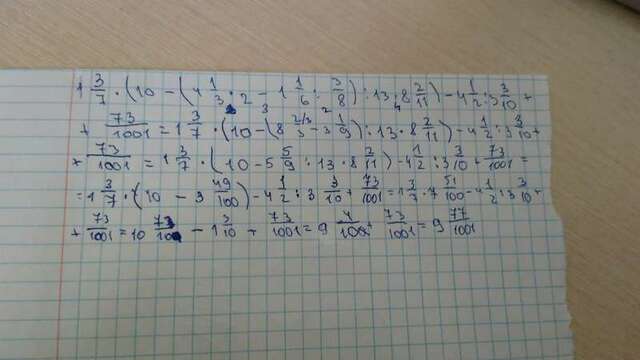 1 3/7 · (10 - (4 1/3 · 2 - 1 1/6 : 3/8) : 13 · 8 2/11) - 4 1/2 : 3 3/10 +
+ 73/1001 = 1 3/7 · (10 - (8 2/3 - 3 1/9) : 13 · 8 2/11) - 4 1/2 : 3 3/10 +
+ 73/1001 = 1 3/7 · (10 - 5 5/9 : 13 · 8 2/11) - 4 1/2 : 3 3/10 + 73/1001 =
= 1 3/7 · (10 - 3 49/100) - 4 1/2 : 3 3/10 + 73/1001 = 1 3/7 · 7 51/100 - 4 1/2 : 3 3/10 +
+ 73/1001 = 10 73/100 - 1 3/10 + 73/1001 = 9 4/100 + 73/1001 = 9 77/1001